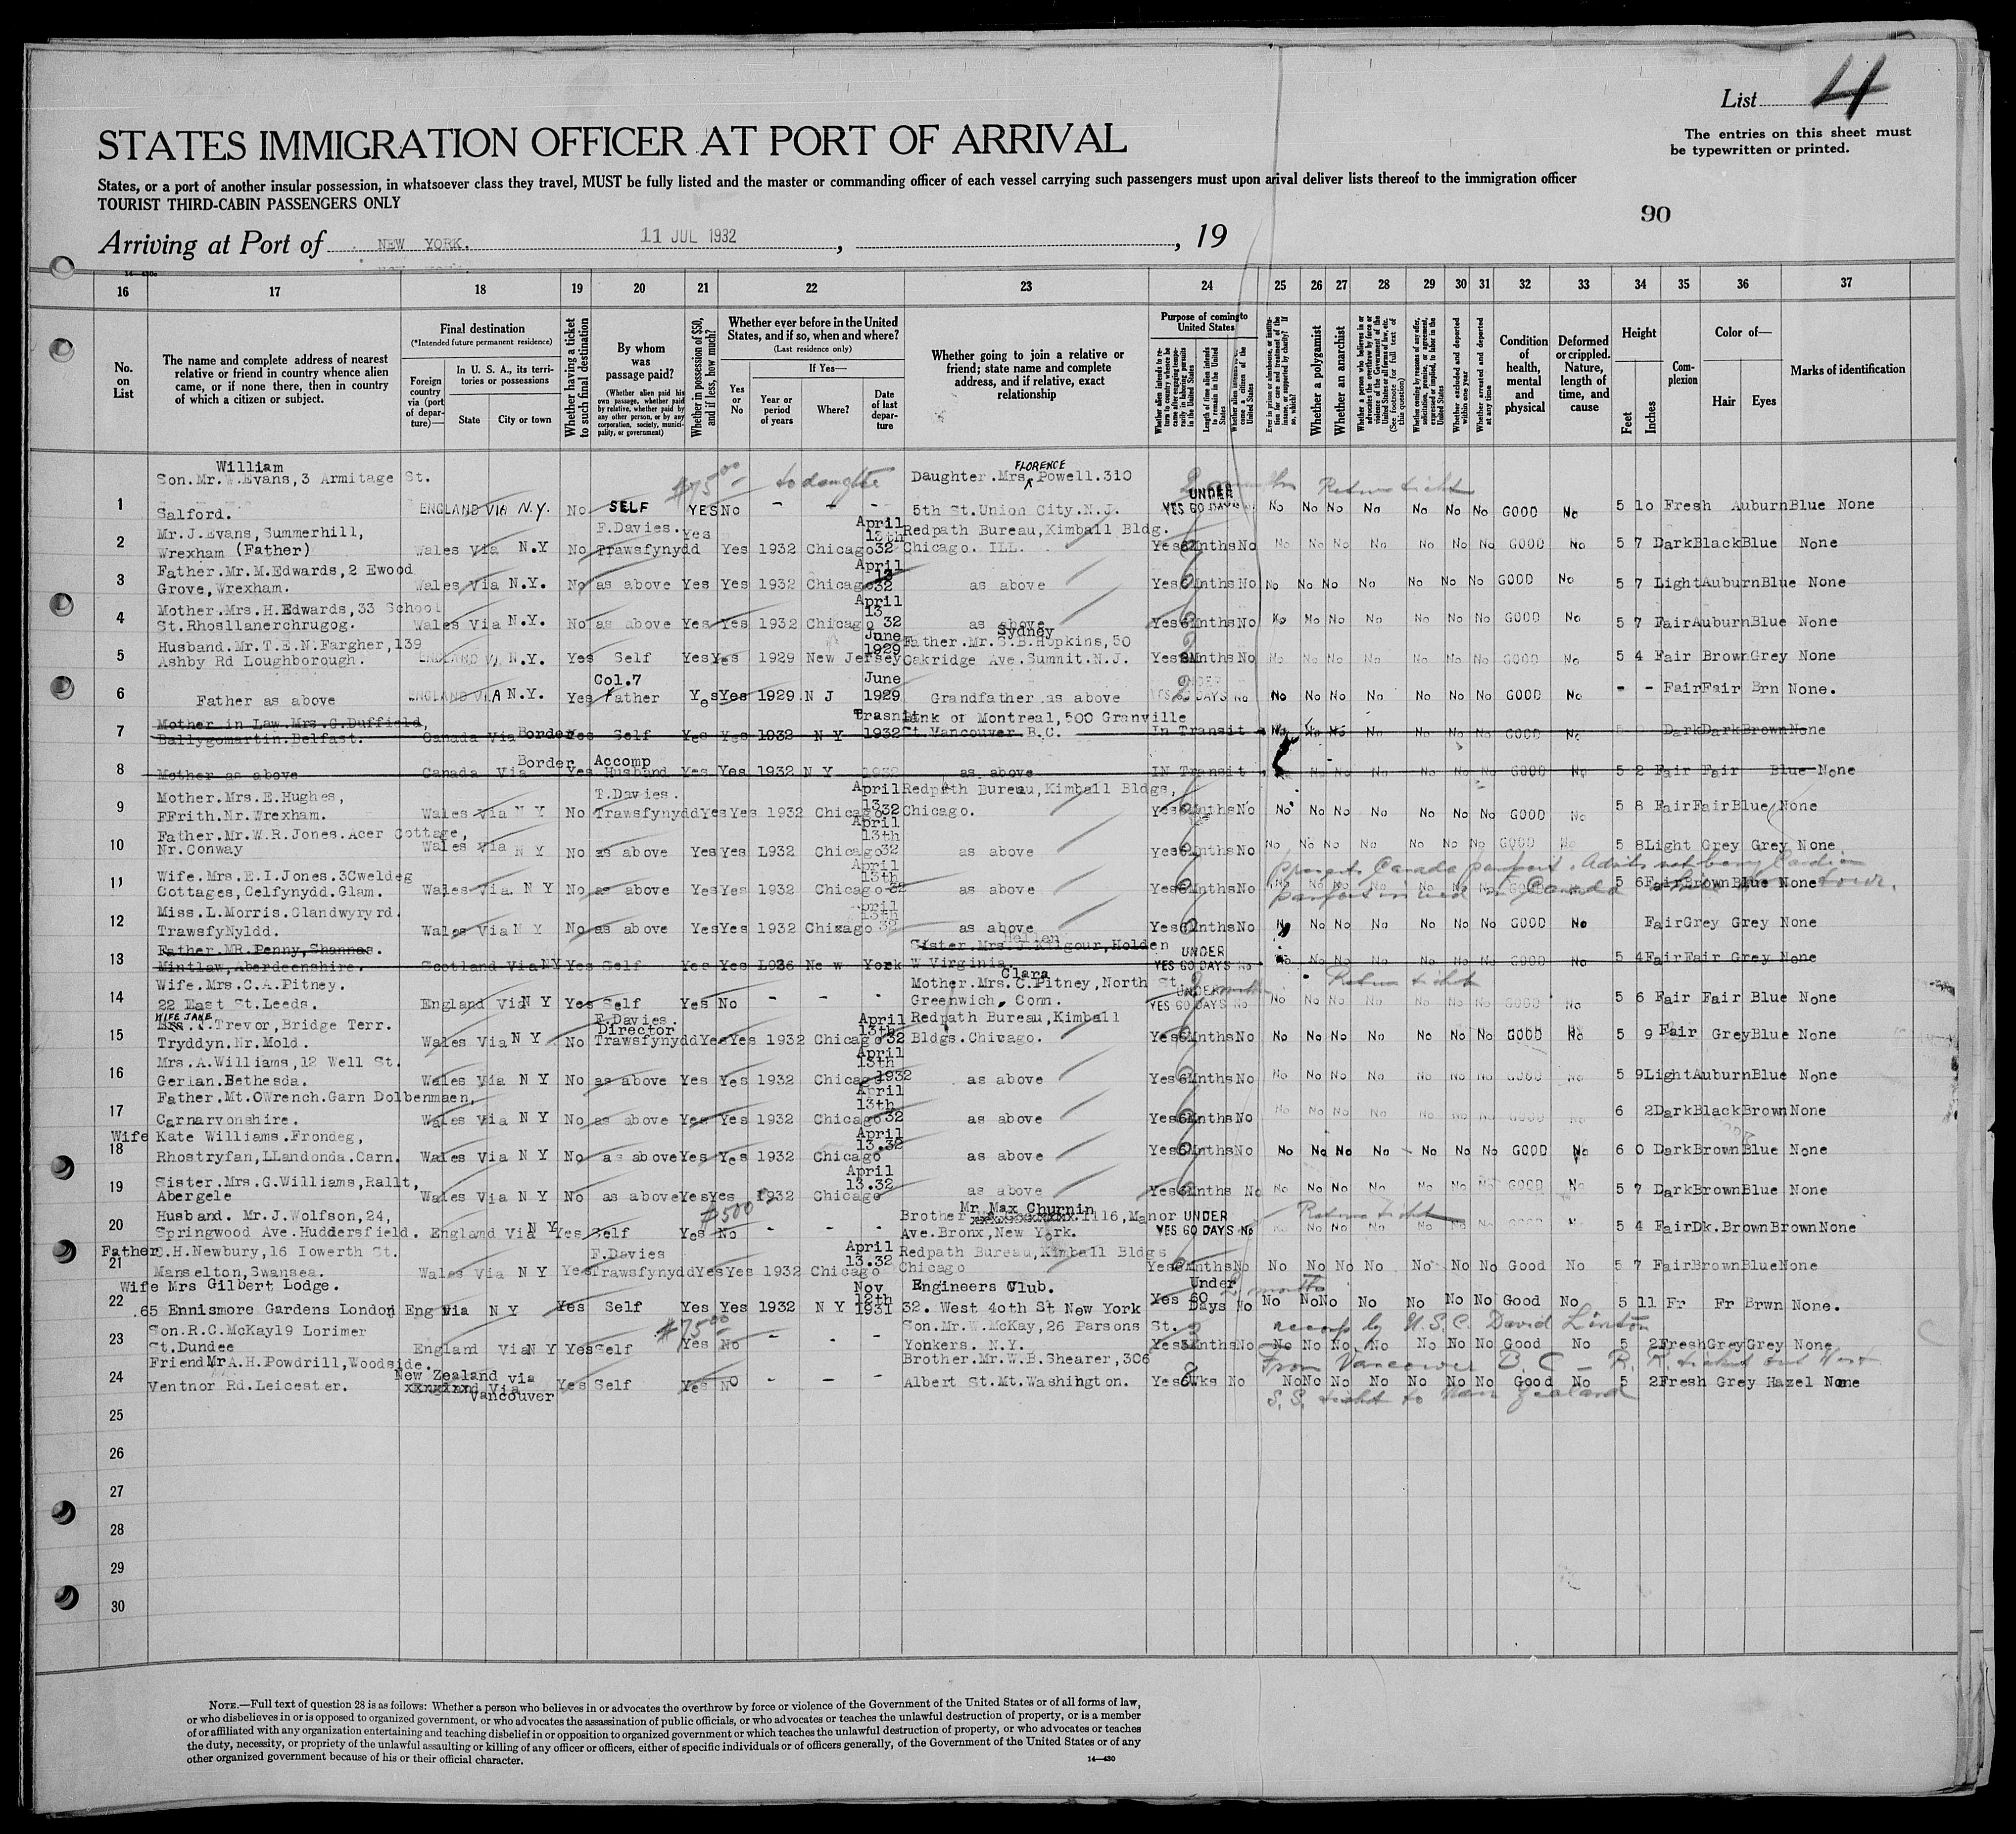 List 4
The entries on this sheet must
be typewritten or printed.
STATES IMMIGRATION OFFICER AT PORT OF ARRIVAL
States, or a port of another insular possession, in whatsoever class they travel, MUST be fully listed and the master or commanding officer of each vessel carrying such passengers must upon arival deliver lists thereof to the immigration officer
TOURIST THIRD-CABIN PASSENGERS ONLY
90
Arriving at Port of NEW YORK. 11 JUL 1932, , 19
16 17 18 19 20 21 22 23 24 25 26 27 28 29 30 31 32 33 34 35 36 37
No. on List
The name and complete address of nearest relative or friend in country whence alien came, or if none there, then in country of which a citizen or subject.
Final destination
(*Intended future permanent residence)
Foreign country via (port of departure)—
In U. S. A., its territories or possessions
State
City or town
Whether having a ticket to such final destination
By whom was passage paid?
(Whether alien paid his own passage, whether paid by relative, whether paid by any other person, or by any corporation, society, municipality, or government)
Whether in possession of $50, and if less, how much?
Whether ever before in the United States, and if so, when and where?
(Last residence only)
Yes or No
If Yes—
Year or period of years
Where?
Date of last departure
Whether going to join a relative or friend; state name and complete address, and if relative, exact relationship
Purpose of coming to United States
Whether a polygamist
Whether an anarchist
Whether excluded and deported within one year
Whether arrested and deported at any time
Condition of health, mental and physical
Deformed or crippled. Nature, length of time, and cause
Height
Feet
Inches
Complexion
Color of—
Hair
Eyes
Marks of identification
William
Son.Mr.W.Evans,3 Armitage St. $75 00 to daughter Daughter.Mrs FLORENCE Powell.310 2 months Return ticket
1 Salford. ENGLAND VIA N.Y. No SELF YES No - - - 5th St.Union City.N.J. UNDER YES 60 DAYS No No No No No No No No GOOD No 5 10 Fresh Auburn Blue None
Mr.J.Evans,Summerhill, F.Davies. April 13th Redpath Bureau,Kimball Bldg.
2 Wrexham (Father) Wales Via N.Y No Trawsfynydd Yes Yes 1932 Chicago 32 Chicago. ILL. Yes 6Mnths No No No No No No No No GOOD No 5 7 Dark Black Blue None
Father.Mr.M.Edwards,2 Ewood April
3 Grove,Wrexham. Wales Via N.Y. No as above Yes Yes 1932 Chicago 13 32 as above Yes 6Mnths No No No No No No No No GOOD No 5 7 Light Auburn Blue None
Mother.Mrs.H.Edwards,33 School April 13
4 St.Rhosllanerchrugog. Wales Via N.Y. No as above Yes Yes 1932 Chicago 32 as above Yes 6Mnths No No No No No No No No GOOD No 5 7 Fair Auburn Blue None
Husband.Mr.T.E.N.Fargher,139 June 1929 Father.Mr.S.B.Hopkins,50 Sydney
5 Ashby Rd Loughborough. ENGLAND VIA N.Y. Yes Self Yes Yes 1929 New Jersey Oakridge Ave.Summit.N.J. Yes 2Mnths No No No No No No No No GOOD No 5 4 Fair Brown Grey None
Col.7 June
6 Father as above ENGLAND VIA N.Y. Yes Father Yes Yes 1929 N J 1929 Grandfather as above UNDER YES 60 DAYS No No No No No No No No GOOD No - - Fair Fair Brn None.
Mother in Law.Mrs.G.Duffield, Trasnit Bank of Montreal,500 Granville
7 Ballygomartin.Belfast. Canada Via Border Yes Self Yes Yes 1932 N Y 1932 St.Vancouver B.C. In Transit No No No No No No No GOOD No Dark Dark Brown None
Border Accomp
8 Mother as above Canada Via Yes Husband Yes Yes 1932 N Y 1932 as above IN Transit No No No No No No GOOD No 5 2 Fair Fair Blue None
Mother.Mrs.E.Hughes, T.Davies. April Redpath Bureau,Kimball Bldgs,
9 FFrith.Nr.Wrexham. Wales Via N Y No Trawsfynydd Yes Yes 1932 Chicago 13 32 Chicago. Yes 6Mnths No No No No No No No No GOOD No 5 8 Fair Fair Blue None
Father.Mr.W.R.Jones.Acer Cottage, April 13th
10 Nr.Conway Wales via N Y No as above Yes Yes L932 Chicago 32 as above Yes 6Mnths No No No No No No No No GOOD No 5 8 Light Grey Grey None
Wife.Mrs.E.I.Jones.3Cweldeg April 13th presents Canada passport. Admits not being Canadian
11 Cottages,Celfynydd.Glam. Wales Via N Y No as above Yes Yes 1932 Chicago 32 as above Yes 6Mnths No No No No No No No No GOOD No 5 6 Fair Brown Blue None
passport issued in Canada
Miss.L.Morris.Glandwyryrd. April 13th
12 TrawsfyNyldd. Wales Via N Y No as above Yes Yes 1932 Chicago 32 as above Yes 6Mnths No No No No No No No No GOOD No Fair Grey Grey None
Father.MR.Penny,Shannas. Sister.Mrs.J.Kilgour,Holden
13 Mintlaw,Aberdeenshire. Scotland Via NY Yes Self Yes Yes L926 New York W Virginia. UNDER YES 60 DAYS No No No No No No No No GOOD No 5 4 Fair Fair Grey None
Wife.Mrs.C.A.Pitney. Mother.Mrs.C.Pitney,North St. Clara Return ticket
14 22 East St.Leeds. England Via NY Yes Self Yes No - - - Greenwich, Conn. UNDER YES 60 DAYS No No No No No No No No GOOD No 5 6 Fair Fair Blue None
WIFE JANE
Mrs.J.Trevor,Bridge Terr. E.Davies. Director April 13th Redpath Bureau,Kimball
15 Tryddyn.Nr.Mold. Wales Via N Y No Trawsfynydd Yes Yes 1932 Chicago 32 Bldgs.Chicago. Yes 6Mnths No No No No No No No No GOOD No 5 9 Fair Grey Blue None
Mrs.A.Williams,12 Well St. April 13th
16 Gerlan.Bethesda. Wales Via N Y No as above Yes Yes 1932 Chicago 1932 as above Yes 6Mnths No No No No No No No No GOOD No 5 9 Light Auburn Blue None
Father.Mt.OWrench.Garn Dolbenmaen, April 13th
17 Carnarvonshire. Wales Via N Y No as above Yes Yes 1932 Chicago 32 as above Yes 6Mnths No No No No No No No No GOOD No 6 2 Dark Black Brown None
Wife Kate Williams.Frondeg, April
18 Rhostryfan,LLandonda.Carn. Wales Via N Y No as above Yes Yes 1932 Chicago 13.32 as above Yes 6Mnths No No No No No No No No GOOD No 6 0 Dark Brown Blue None
Sister.Mrs.G.Williams,Rallt, April 13.32
19 Abergele Wales Via N Y No as above Yes Yes 1932 Chicago as above Yes 6Mnths No No No No No No No No GOOD No 5 7 Dark Brown Blue None
Husband. Mr.J.Wolfson,24, $500 Brother Mr Max Churnin 1116,Manor UNDER Return ticket
20 Springwood Ave.Huddersfield. England Via N Y Yes Self Yes No - - - Ave.Bronx,New York. YES 60 DAYS No No No No No No No No GOOD No 5 4 Fair Dk.Brown Brown None
Father C.H.Newbury,16 Iowerth St. F.Davies April Redpath Bureau,Kimball Bldgs
21 Manselton,Swansea. Wales Via N Y Yes Trawsfynydd Yes Yes 1932 Chicago 13.32 Chicago Yes 6Mnths No No No No No No No No Good No 5 7 Fair Brown Blue None
Wife Mrs Gilbert Lodge. Nov 12th Engineers Club. Under 2 months
22 65 Ennismore Gardens London Eng Via N Y Yes Self Yes Yes 1932 N Y 1931 32. West 40th St New York Yes 60 Days No No No No No No No No Good No 5 11 Fr Fr Brwn None.
Son.R.C.McKay19 Lorimer $75 00 Son.Mr.W.McKay,26 Parsons St. accomp by U.S.C. David Linton
23 St.Dundee England Via N Y Yes Self Yes No - - - Yonkers. N.Y. Yes 3Mnths No No No No No No No No Good No 5 2 Fresh Grey Grey None
Friend Mr A.H.Powdrill,Woodside. New Zealand via Brother.Mr.W.B.Shearer,306 From Vancouver B.C. - R.R. ticket out West
24 Ventnor Rd.Leicester. Vancouver Yes Self Yes No - - - Albert St.Mt.Washington. Yes 6Wks No No No No No No No No Good No 5 2 Fresh Grey Hazel None
S.S. ticket to New Zealand
25
26
27
28
29
30
NOTE.—Full text of question 28 is as follows: Whether a person who believes in or advocates the overthrow by force or violence of the Government of the United States or of all forms of law,
or who disbelieves in or is opposed to organized government, or who advocates the assassination of public officials, or who advocates or teaches the unlawful destruction of property, or is a member
of or affiliated with any organization entertaining and teaching disbelief in or opposition to organized government or which teaches the unlawful destruction of property, or who advocates or teaches
the duty, necessity, or propriety of the unlawful assaulting or killing of any officer or officers, either of specific individuals or of officers generally, of the Government of the United States or of any
other organized government because of his or their official character.
14—430